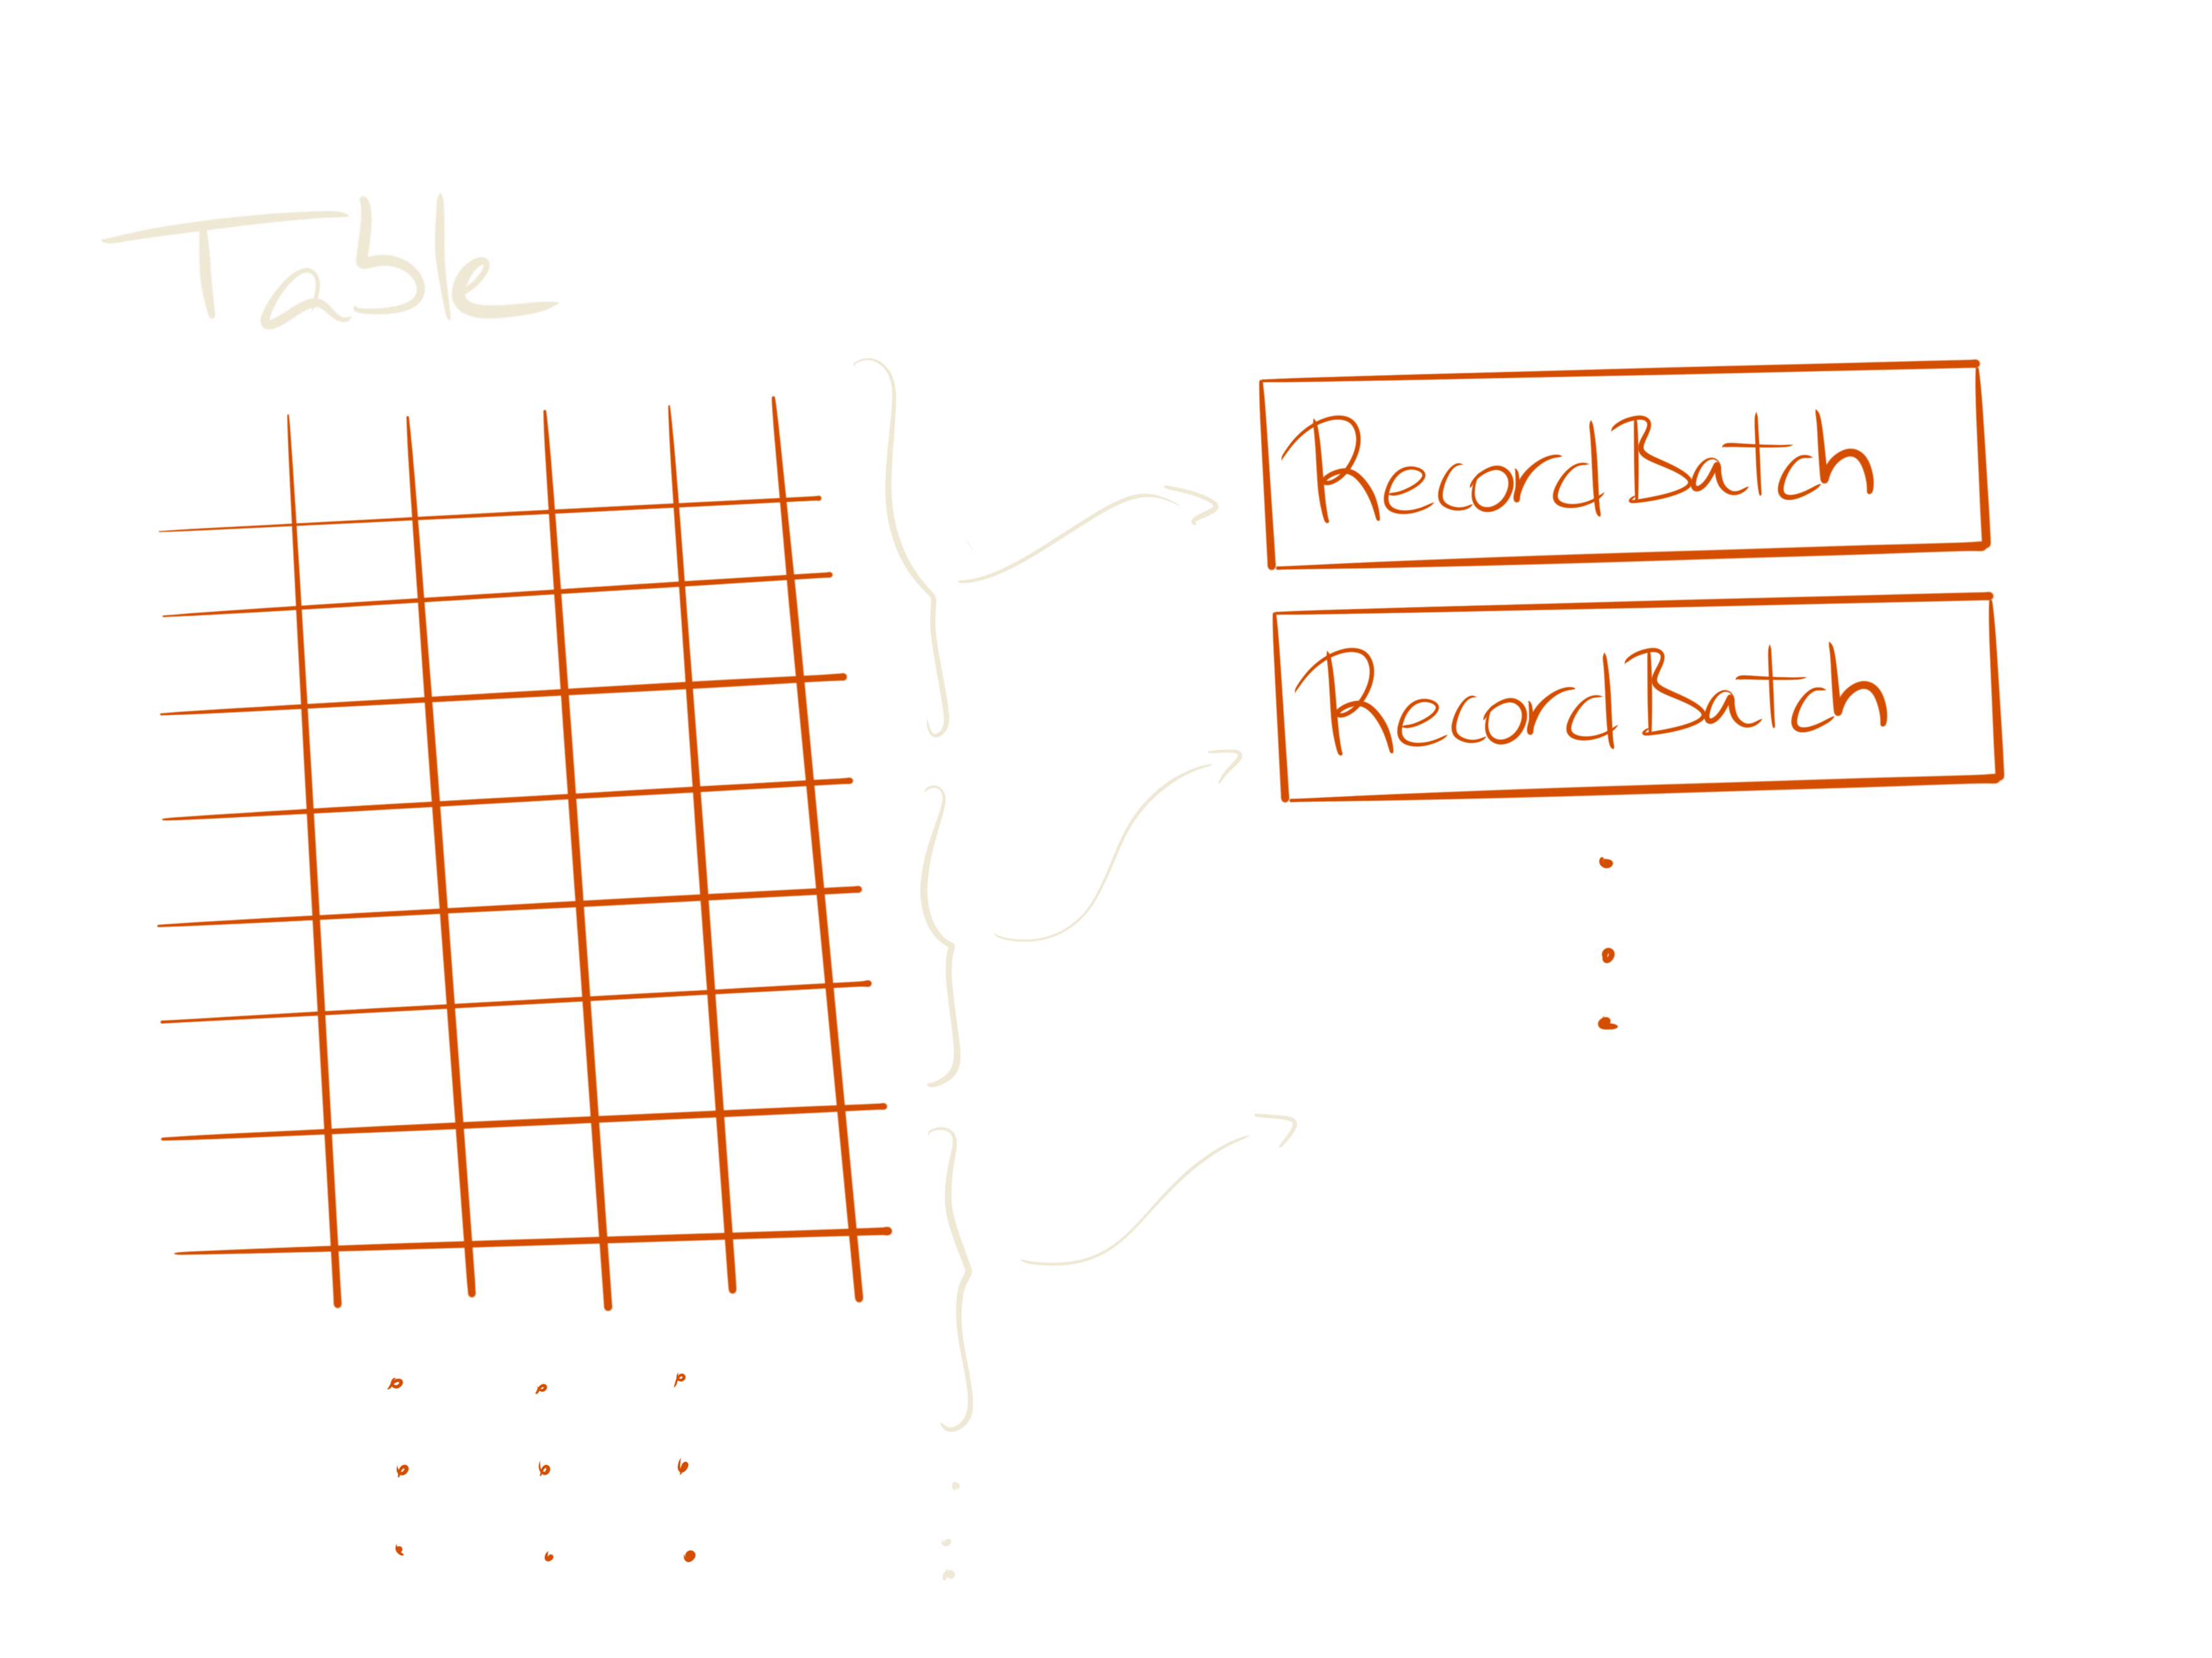 Table
RecordBatch
RecordBatch